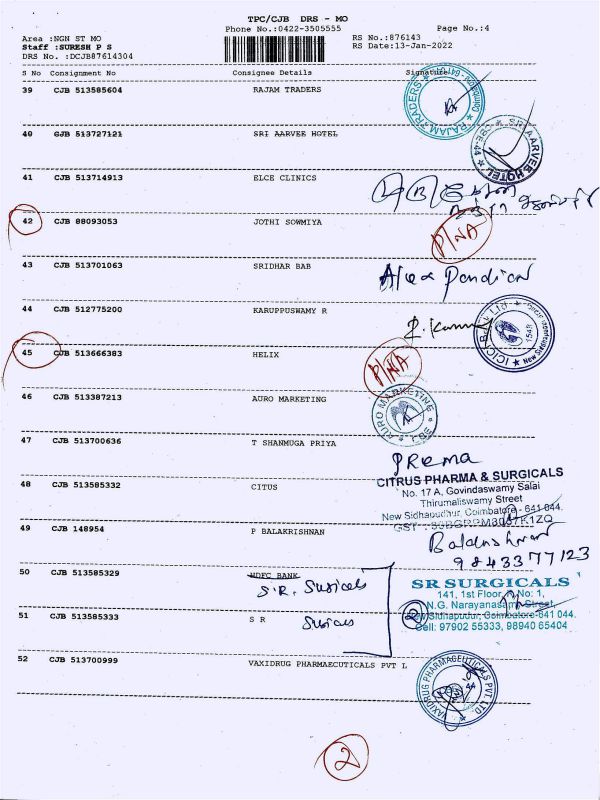 TPC/CJB DRS - MO
Phone No.:0422-3505555 Page No.:4
Area :NGN ST MO RS No.:876143
Staff :SURESH P S RS Date:13-Jan-2022
DRS No. :DCJB87614304
S No Consignment No Consignee Details Signature
39 CJB 513585604 RAJAM TRADERS
RAJAM TRADERS
40 CJB 513727121 SRI AARVEE HOTEL
SRI AARVEE HOTEL CBE-44
41 CJB 513714913 ELCE CLINICS
42 CJB 88093053 JOTHI SOWMIYA
P/NA
43 CJB 513701063 SRIDHAR BAB
Pandian
44 CJB 512775200 KARUPPUSWAMY R
R. Kumar
ICICI Bank Ltd 1548
45 CJB 513666383 HELIX
P/NA
46 CJB 513387213 AURO MARKETING
AURO MARKETING CBE
47 CJB 513700636 T SHANMUGA PRIYA
PRema
48 CJB 513585332 CITUS
CITRUS PHARMA & SURGICALS
No. 17 A, Govindaswamy Salai
Thirumaliswamy Street
New Sidhapudhur, Coimbatore - 641 044.
49 CJB 148954 P BALAKRISHNAN
Balakrishnan
9843377123
50 CJB 513585329 HDFC BANK
S.R. Susicals
51 CJB 513585333 S R
Susicals
2
SR SURGICALS
141, 1st Floor, No: 1,
N.G. Narayanasami Street,
New Sidhapudur, Coimbatore-641 044.
Cell: 97902 55333, 98940 65404
52 CJB 513700999 VAXIDRUG PHARMAECUTICALS PVT L
VAXIDRUG PHARMACEUTICALS PVT. LTD
2